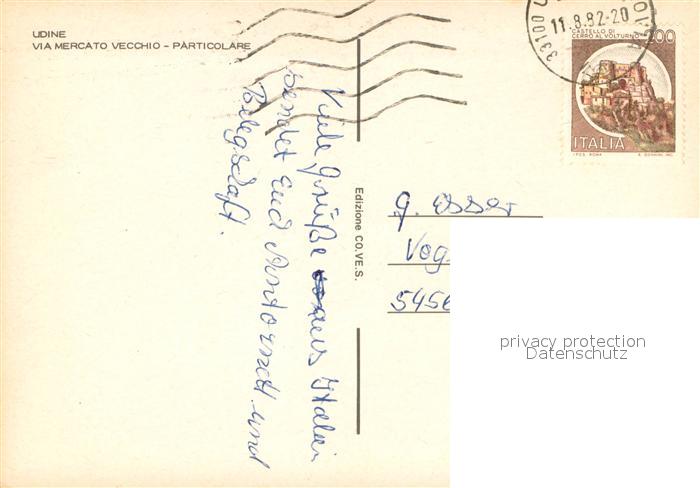 UDINE
VIA MERCATO VECCHIO - PARTICOLARE
33100
11.8.82-20
CASTELLO DI
CERRO AL VOLTURNO 200
ITALIA
I.P.Z.S. ROMA
Edizione CO.VE.S.
Viele Grüße aus Italien
sendet Euch und
Belegschaft.
G. Esser
Vog
5456
privacy protection
Datenschutz